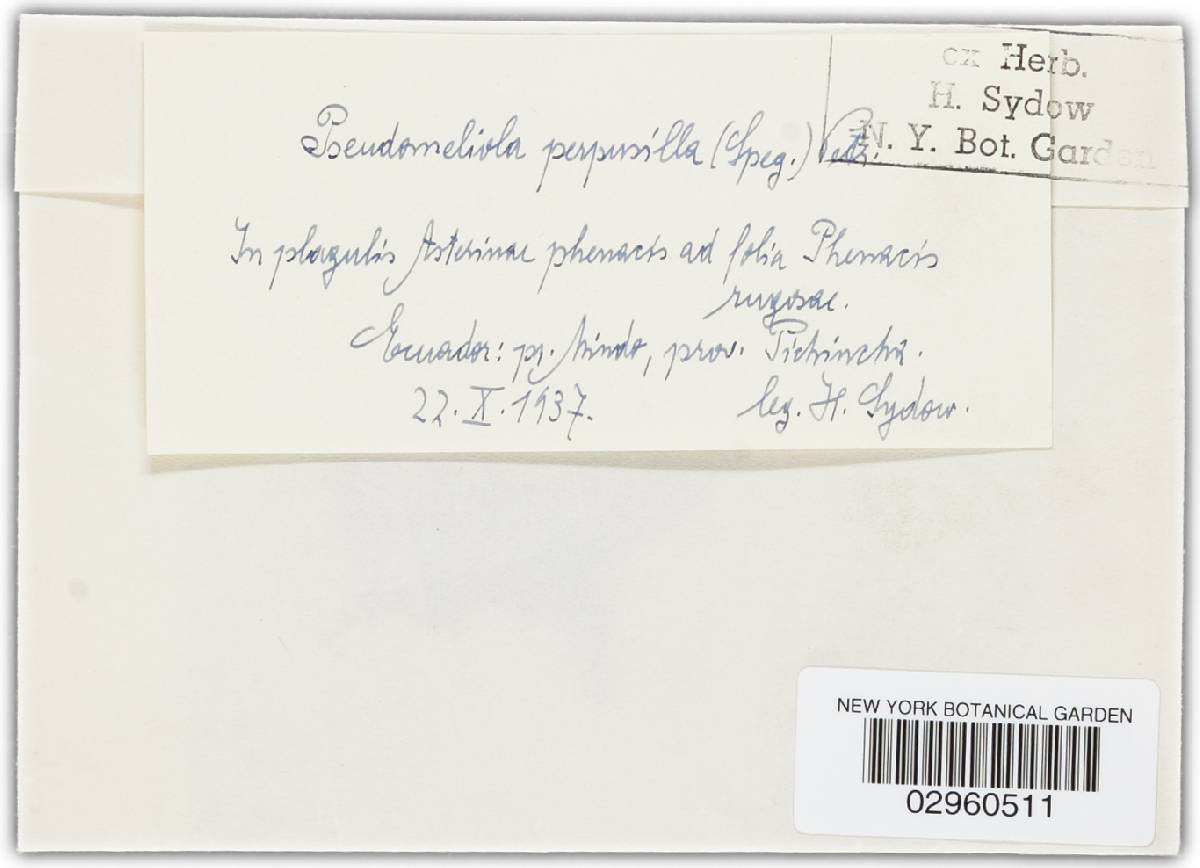 ex Herb.
H. Sydow
N. Y. Bot. Garden
Pseudomeliola perpusilla (Speg.) Petr.
In plagulis Asterinae phenacis ad folia Phenacis
rugosae.
Ecuador: pr. Mindo, prov. Pichincha.
22. X. 1937. leg. H. Sydow.
NEW YORK BOTANICAL GARDEN
02960511